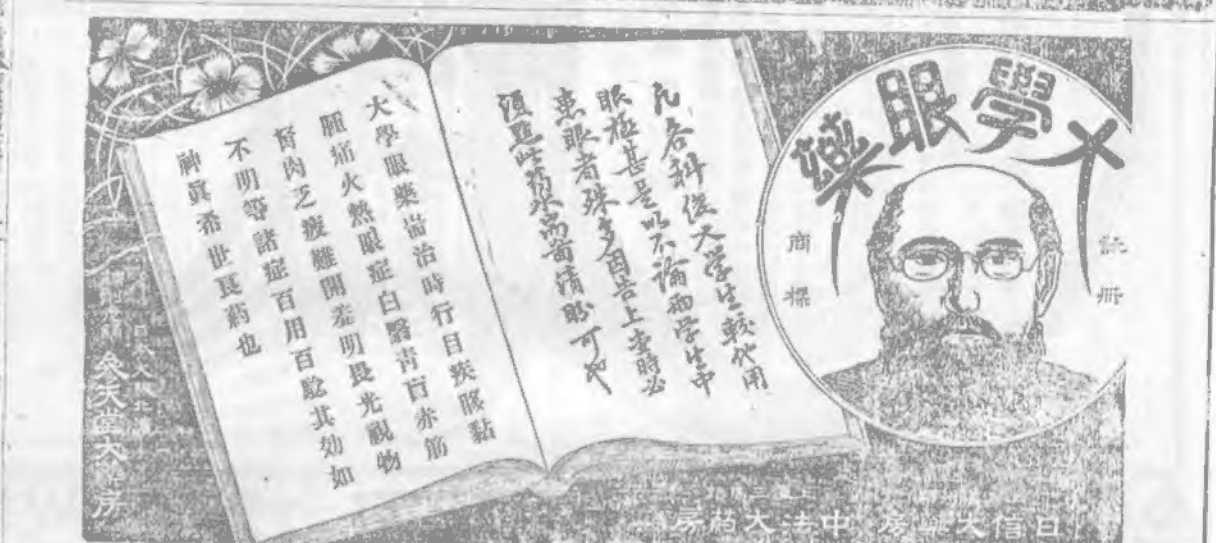 大學眼藥
註冊
商標
凡各科從大学生較他用
眼極甚是以不論西学生中
患眼者殊多因告上患時必
須點些藥水而當清眇可也
大學眼藥耑治時行目疾眵黏
腫痛火熱眼症白翳青盲赤筋
努肉乏疲難開羞明畏光視物
不明等諸症百用百驗其効如
神眞希世良葯也
參天堂大藥房
日信大藥房
中法大葯房